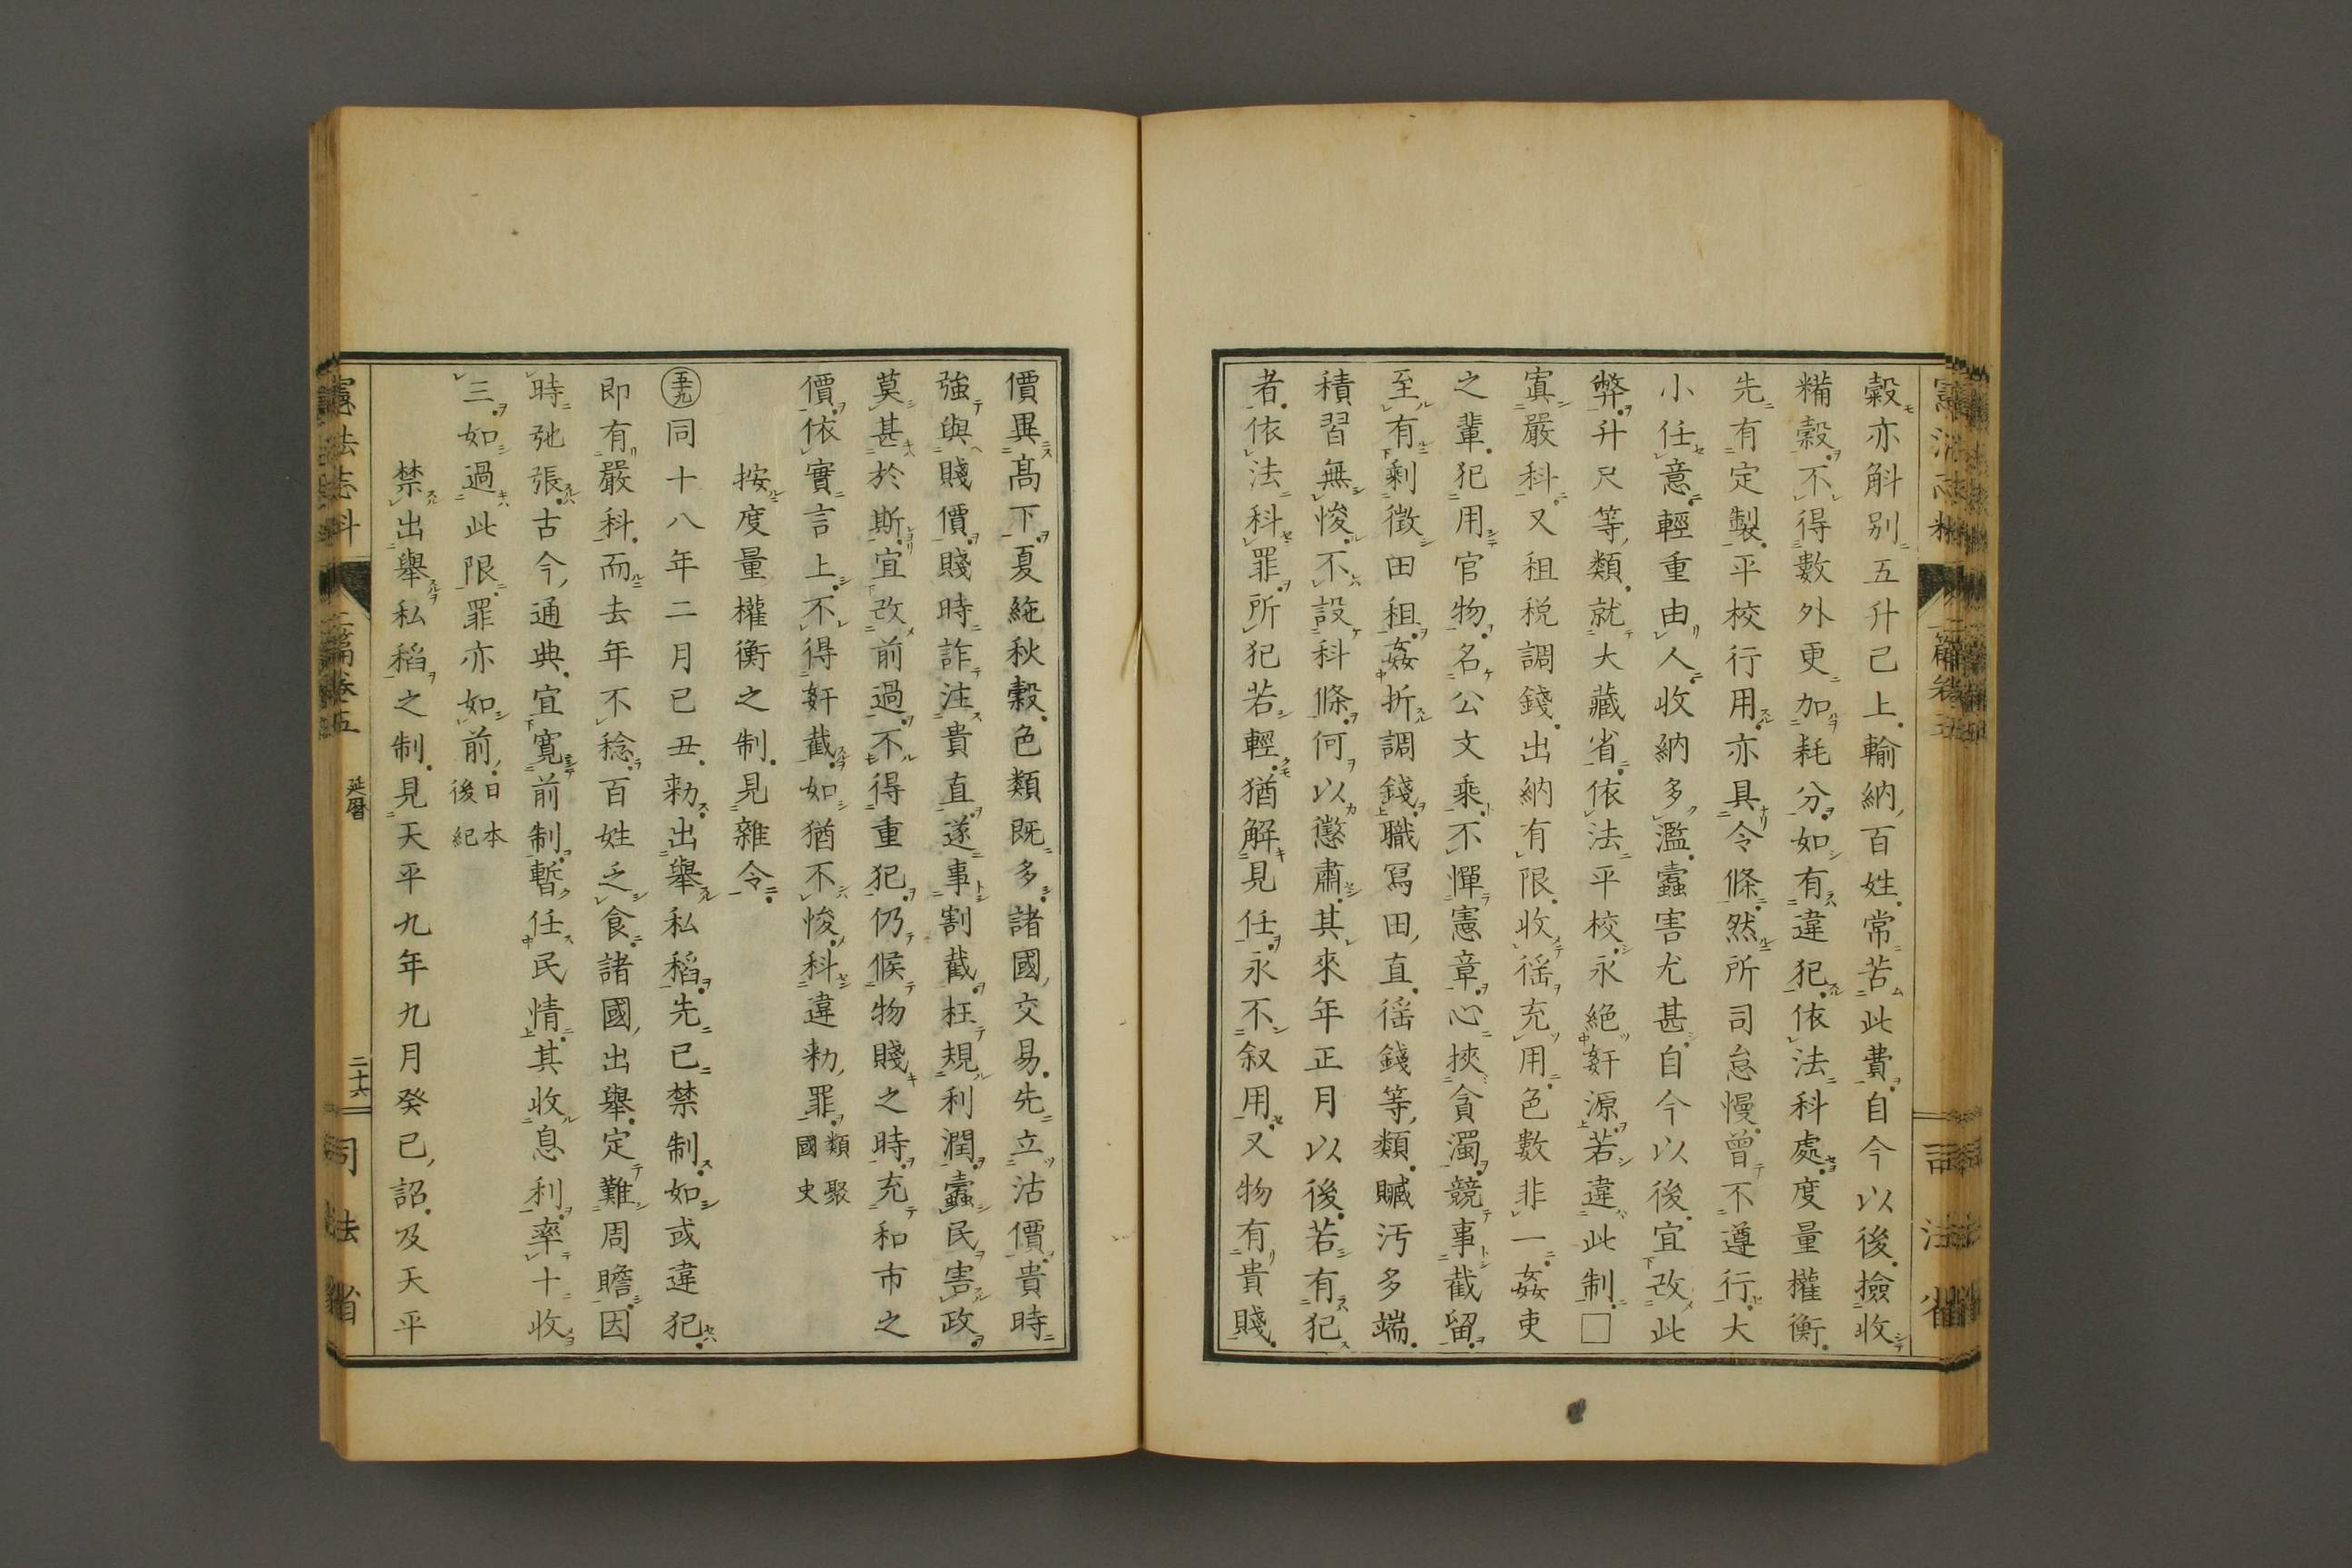 穀亦斛别五升已上輸納百姓常苦此費自今以後撿收
糒穀不得數外更加耗分如有違犯依法科處度量權衡
先有定製平校行用亦具令條然所司怠慢曾不遵行大
小任意輕重由人收納多濫蠹害尤甚自今以後宜改此
弊升尺等類就大藏省依法平校永絕奸源若違此制□
寘嚴科又租税調錢出納有限收徭充用色數非一姦吏
之輩犯用官物名公文乘不憚憲章心挾貪濁競事截留
至有剩徴田租姦折調錢職冩田直徭錢等類贓汚多端
積習無悛不設科條何以懲肅其來年正月以後若有犯
者依法科罪所犯若輕猶解見任永不叙用又物有貴賤
價異髙下夏絁秋穀色類既多諸國交易先立沽價貴時
強與賤價賤時詐注貴直遂事割截枉規利潤蠹民害政
莫甚於斯宜改前過不得重犯仍候物賤之時充和市之
價依實言上不得奸截如猶不悛科違勅罪類聚國史
按度量權衡之制見雜令
五九同十八年二月已丑勅出舉私稻先已禁制如或違犯
即有嚴科而去年不稔百姓乏食諸國出舉定難周贍因
時弛張古今通典宜寬前制暫任民情其收息利率十收
三如過此限罪亦如前日本後紀
禁出舉私稻之制見天平九年九月癸已詔及天平
憲法志料
二篇卷五
延曆
二十六
司法省